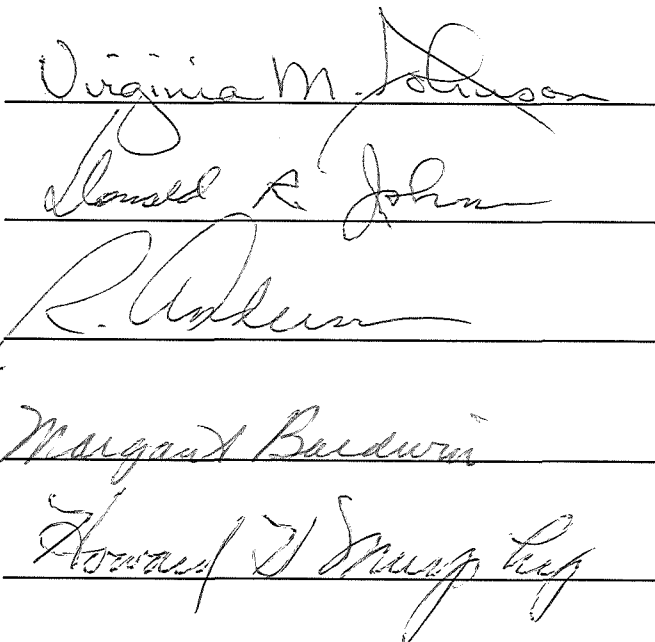 Virginia M. Johnson
Donald R. Johnson
R. Anderson
Margaret Baldwin
Howard H Murphy